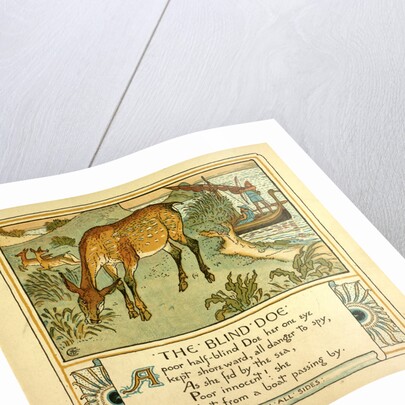 ·THE·BLIND·DOE·
A poor half-blind Doe her one eye
kept shoreward, all danger to spy,
As she fed by the sea,
Poor innocent! she
from a boat passing by.
ALL SIDES.